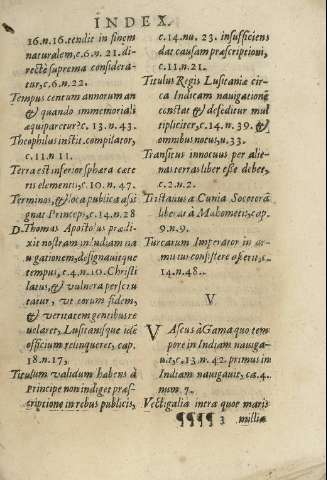 INDEX.
16.n.16. tendit in finem
naturalem, c.6.n.21. di-
recté suprema considera-
tur, c.6.n.22.
Tempus centum annorum an
& quando immemoriali
æquiparetur? c. 13. n. 43.
Theophilus instit. compilator,
c.11 n 11.
Terra est inferior sphæra cæte
ris elementis, c.10. n. 47.
Terminos, & loca publica assi
gnat Princeps, c.14. n.28
D. Thomas Apostolus prædi-
xit nostram in Indiam na
uigationem, designauitque
tempus, c.4.n.10. Christi
latus, & vulnera perscru
tatur, vt eorum fidem,
& veritatem gentibus re
uelaret, Lusitanisque idē
officium relinqueret, cap.
18.n.17,
Titulum validum habens à
Principe non indiget præs-
criptione in rebus publicis,
c.14. nu. 23. insufficiens
dat causam præscriptioni,
c.11.n.21.
Titulus Regis Lusitaniæ cir-
ca Indicam nauigationē
constat & defeditur mul
tipliciter, c.14.n.39. &
omnibus notus, n.33.
Transitus innocuus per alie-
nas terras liber esse debet,
c.2.n.2.
Tristauus a Cunia Socotorā
liberat à Mahometis, cap.
9.n.9.
Turcarum Imperator in ar-
mis tur consistere
14.n.48.
V
VAscus à Gama quo tem
pore in Indiam nauiga-
uit, c.13.n. 42. primus in
Indiam nauigauit, ca.4.
num. 7.
Vectigalia intra quor maris
¶¶¶¶ 3 millia